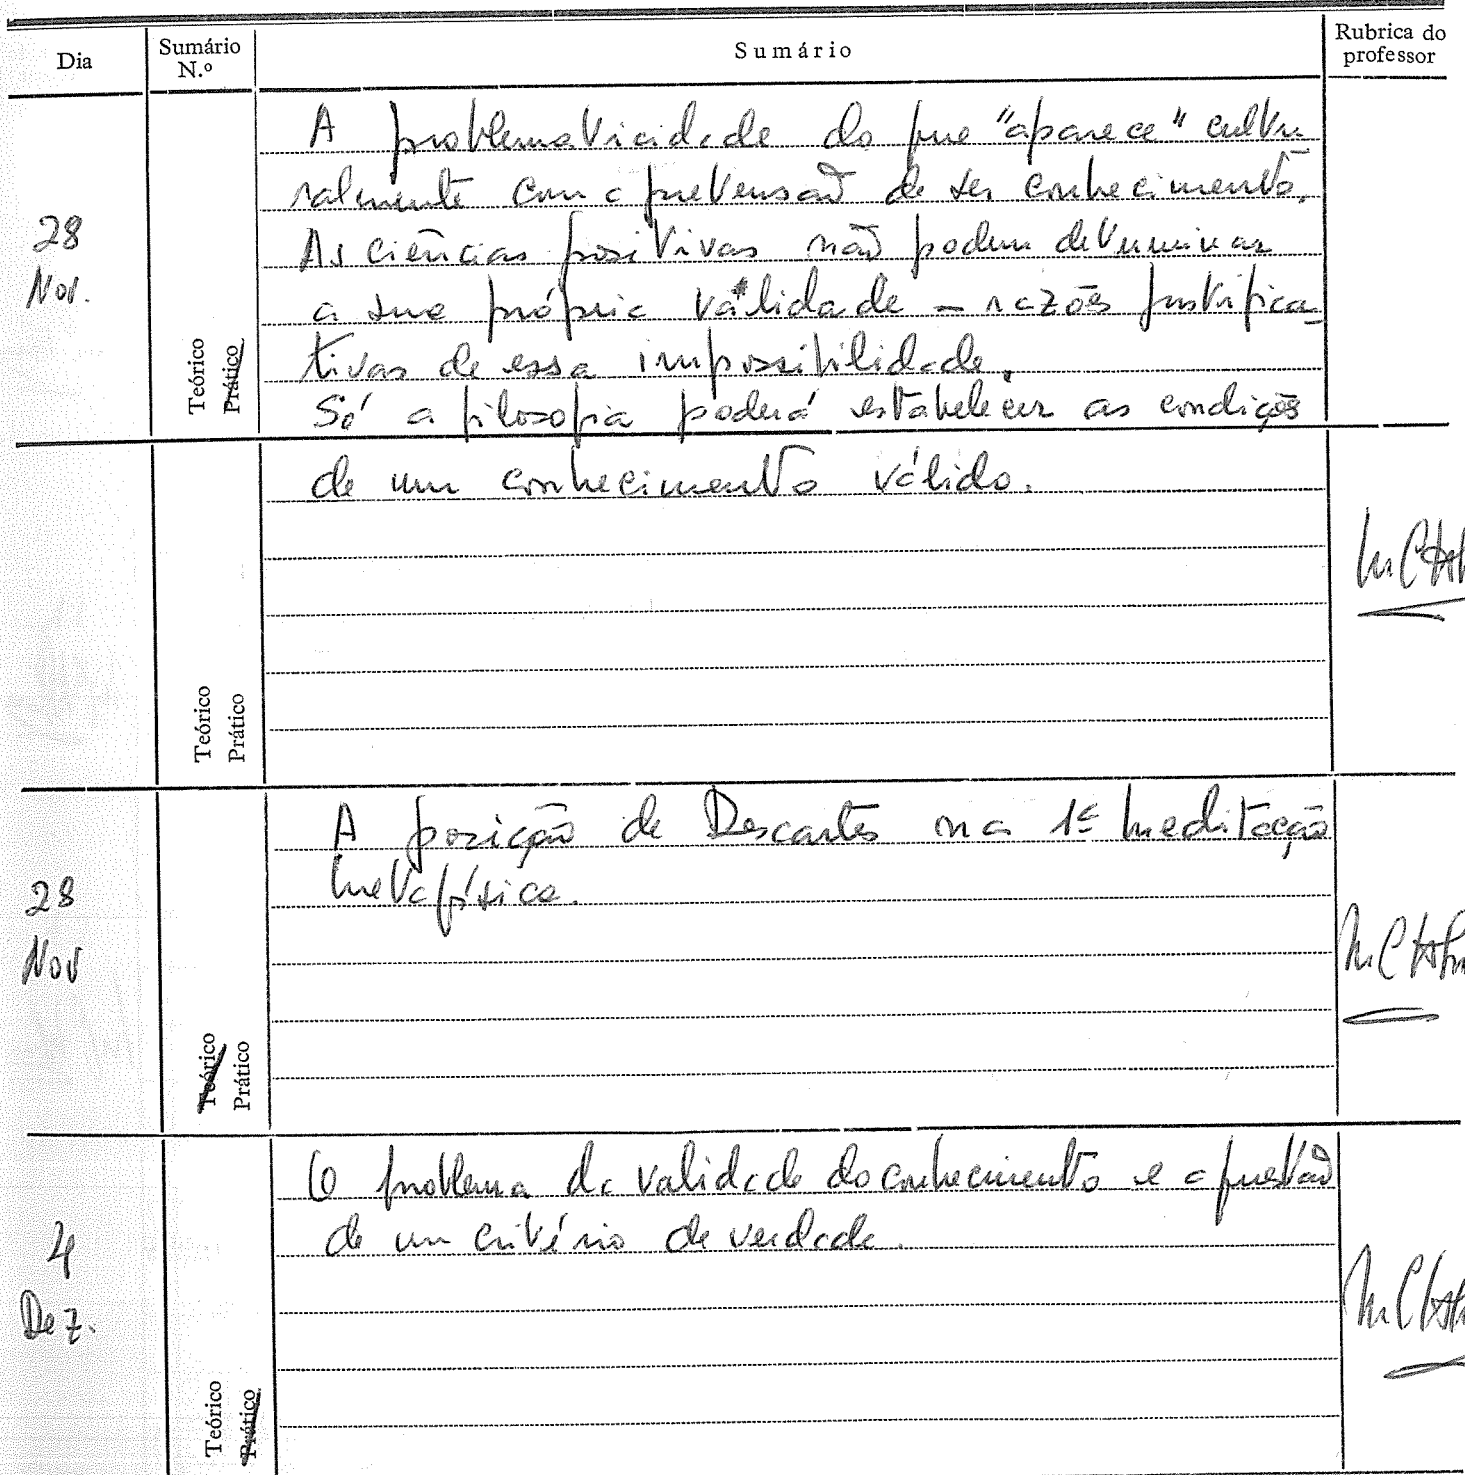 Dia
Sumário N.º
Sumário
Rubrica do professor
28 Nov.
Teórico
Prático
A problematicidade do que "aparece" cultu
ralmente com a pretensão de ser conhecimento.
As ciências positivas não podem determinar
a sua própria válidade – razões justifica-
tivas de essa impossibilidade.
Só a filosofia poderá estabelecer as condições
de um conhecimento válido.
Teórico
Prático
28 Nov
Teórico
Prático
A posição de Descartes na 1ª Meditação
Metafísica.
4 Dez.
Teórico
Prático
O problema da validade do conhecimento e a questão
de um critério de verdade.